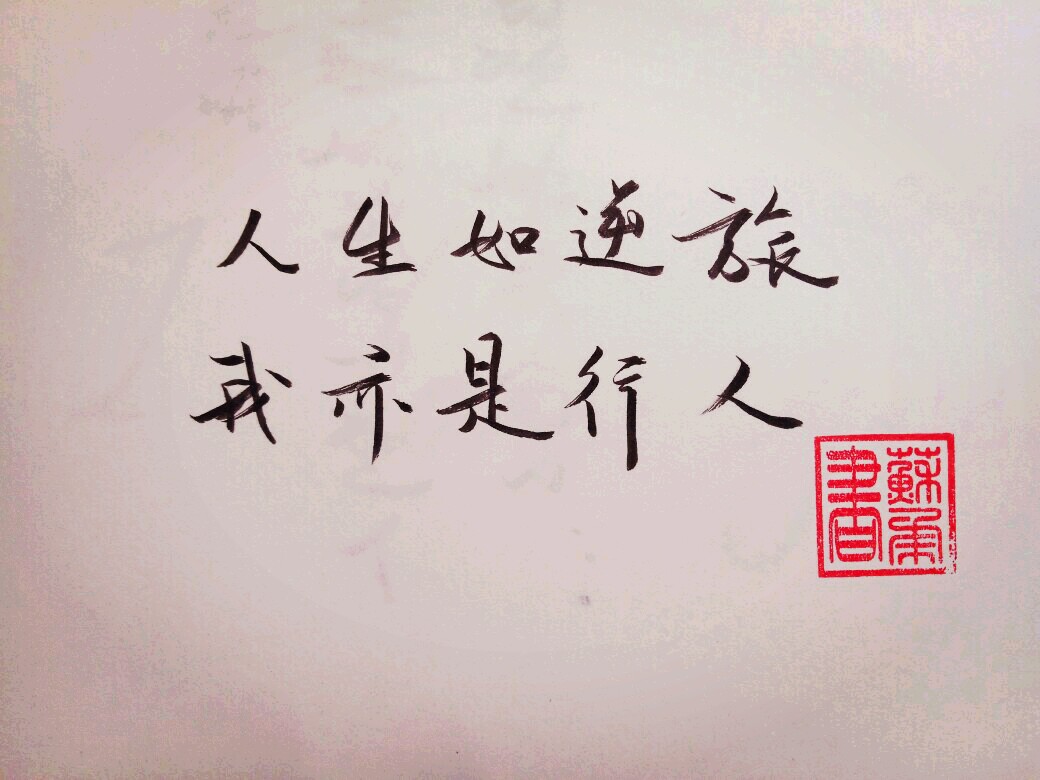 人生如逆旅
我亦是行人
蘇
書